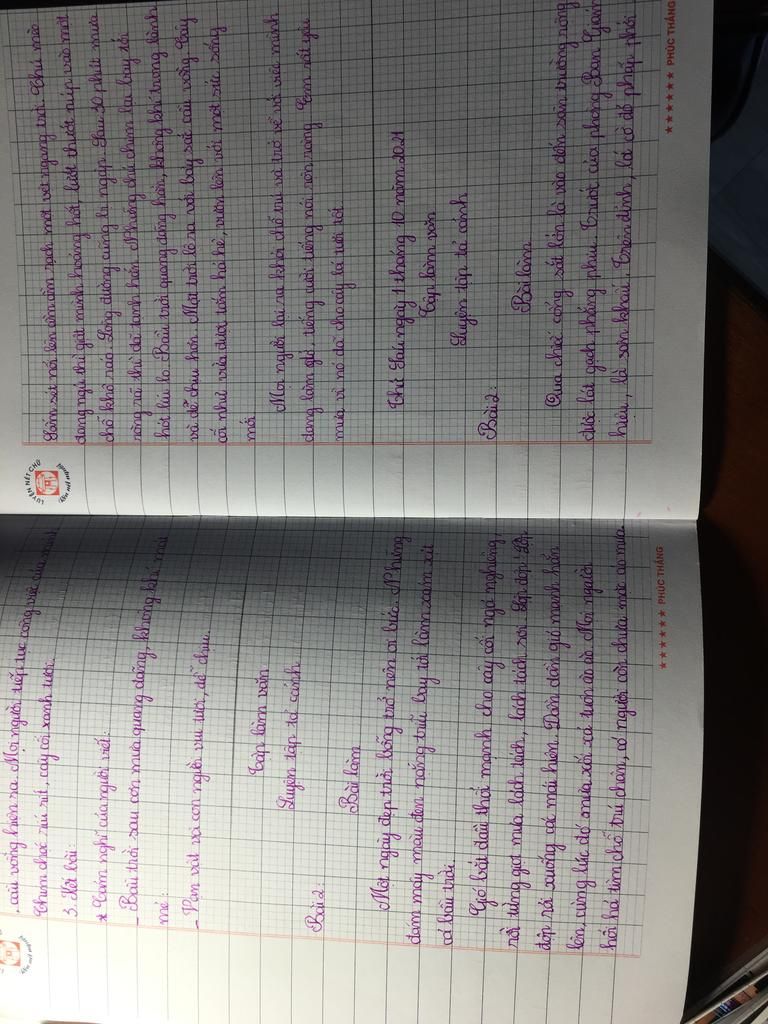 , cầu vồng hiện ra. Mọi người tiếp tục công việc của mình
Chim chóc ríu rít, cây cối xanh tươi.
3. Kết bài:
* Cảm nghĩ của người viết:
- Bầu trời sau cơn mưa quang đãng, không khí mát
mẻ.
- Vạn vật và con người vui tươi, dễ chịu.
Tập làm văn
Luyện tập tả cảnh
Bài 2:
Bài làm
Một ngày đẹp trời bỗng trở nên oi bức. Những
đám mây màu đen nặng trĩu bay tới làm xám xịt
cả bầu trời.
Gió bắt đầu thổi mạnh cho cây cối ngả nghiêng,
rồi từng giọt mưa lách tách, lách tách rơi lộp độp. Lộp
độp rơi xuống các mái hiên. Dần dần gió mạnh hẳn
lên, cùng lúc đó mưa xối xả tuôn ào ào. Mọi người
hối hả tìm chỗ trú chân, có người còn chưa mặc áo mưa.
PHÚC THÁNG
LUYỆN NÉT CHỮ
Rèn nết người
Sấm sét nổi lên ầm ầm rạch một vệt ngang trời. Chú mèo
đang ngủ thì giật mình hoảng hốt, lướt thướt núp vào một
chỗ khô ráo. Lòng đường cũng bị ngập. Sau 30 phút mưa
ròng rã thì đã tạnh hẳn. Những chú chim lại bay tới
hót líu lo. Bầu trời quang đãng hơn, không khí trong lành
và dễ chịu hơn. Mặt trời ló ra với bảy sắc cầu vồng. Cây
cối như vừa được tắm hả hê, vươn lên với một sức sống
mới
Mọi người lại ra khỏi chỗ trú và trở về với việc mình
đang làm giở, tiếng cười tiếng nói rộn ràng. Em rất yêu
mưa vì nó đã cho cây lá tươi tốt
Thứ Sáu ngày 1 tháng 10 năm 2021
Tập làm văn
Luyện tập tả cảnh
Bài 2:
Bài làm
Qua chiếc cổng sắt lớn là vào đến sân trường rộng
được lát gạch phẳng phiu. Trước cửa phòng Ban Giám
hiệu, là sân khấu. Trên đỉnh, lá cờ đỏ phấp phới
PHÚC THÁNG